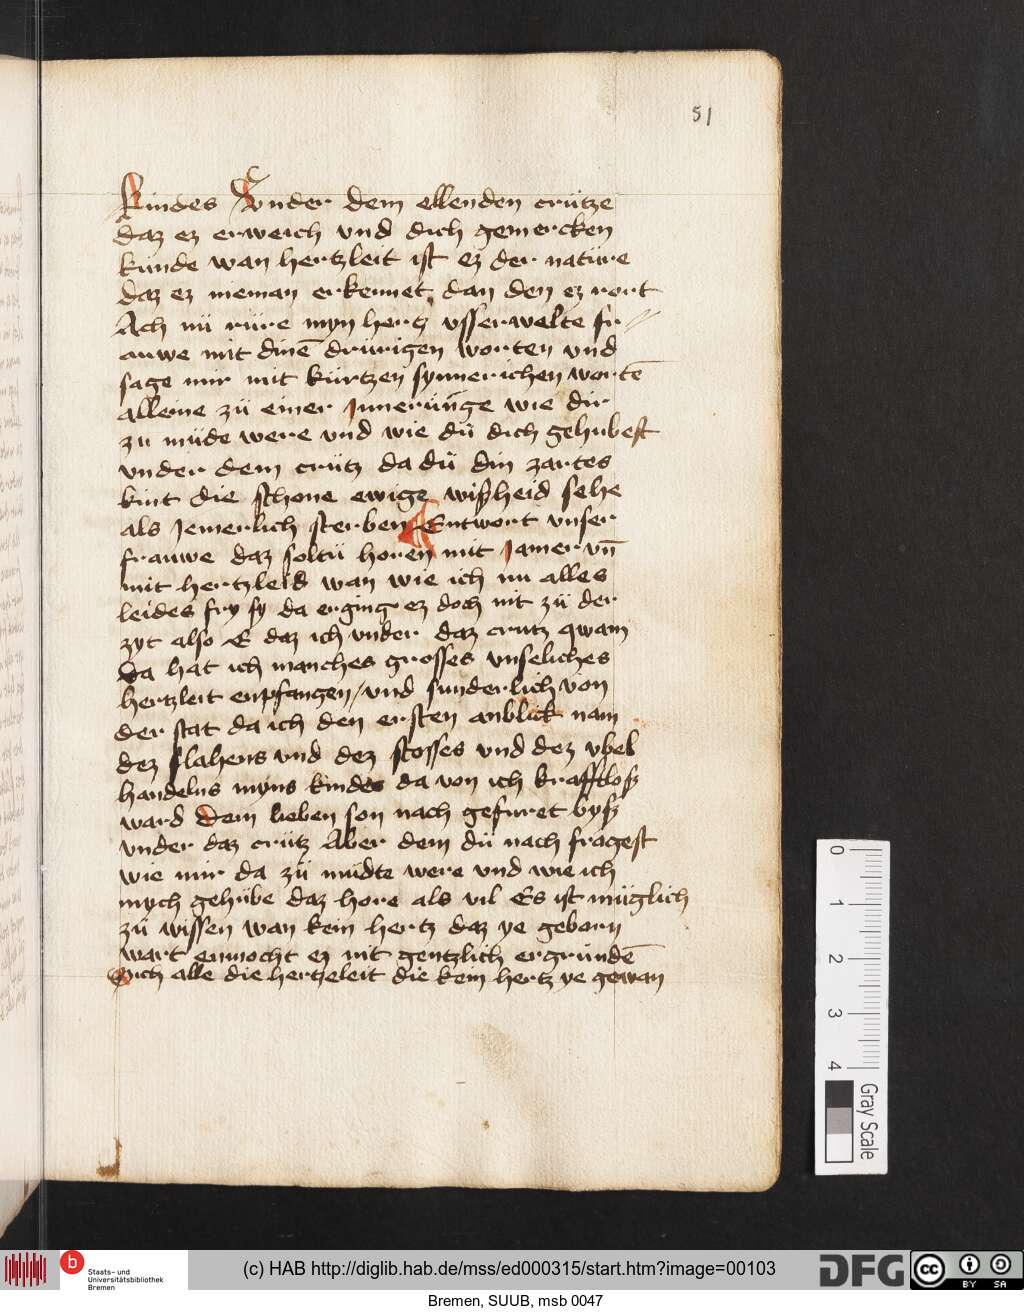 51
kindes Vnder dem ellenden crütze
daz ez erweich vnd dich gemercken
kunde wan hertzleit ist ez der natüre
daz ez nieman erkennet dan den ez rort
Ach nü rüre myn hertz vsserwelte fr//
auwe mit dinē drürigen worten vnd
sage mir mit kürtzen synnerichen wortē
alleine zü einer Innerünge wie dir
zu müde were vnd wie dü dich gehubest
vnder dem crütz da dü din zartes
kint die schone ewige wißheid sehe
als Jemerlich sterben Entwort vnser
frauwe daz soltü horen mit Jamer vn̄
mit hertzleid wan wie ich nu alles
leides fry sy da erging ez doch nit zü der
zyt also E daz ich vnder daz crutz qwam
Da hat ich manches grosses vnseliches
hertzleit enpfangen/vnd sunderlich von
der stat da ich den ersten anblick nam
dez slahens vnd dez stosses vnd dez vbel
handelns myns kindes da von ich krafftloß
ward Dem lieben son nach gefuret byß
vnder daz crütz Aber dem dü nach fragest
wie mir da zü müdte were vnd wie ich
mych gehübe daz hore als vil Es ist müglich
zü wissen wan kein hertz daz ye geborn
wart enmocht ez nit gentzlich ergründē
Sich alle die hertzeleit die kein hertz ye gewan
0
1
2
3
4
Gray Scale
b
Staats- und
Universitätsbibliothek
Bremen
(c) HAB http://diglib.hab.de/mss/ed000315/start.htm?image=00103
DFG
cc
BY SA
Bremen, SUUB, msb 0047